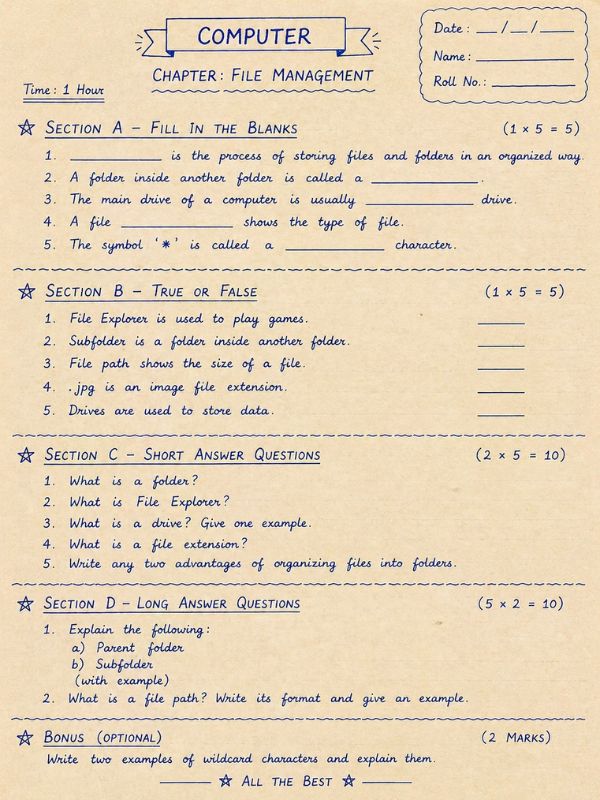 COMPUTER
CHAPTER: FILE MANAGEMENT
Date: __/__/__
Name: __________
Roll No.: __________
Time: 1 Hour
SECTION A – FILL IN THE BLANKS (1 × 5 = 5)
1. __________ is the process of storing files and folders in an organized way.
2. A folder inside another folder is called a __________.
3. The main drive of a computer is usually __________ drive.
4. A file __________ shows the type of file.
5. The symbol ‘*’ is called a __________ character.
SECTION B – TRUE OR FALSE (1 × 5 = 5)
1. File Explorer is used to play games. _____
2. Subfolder is a folder inside another folder. _____
3. File path shows the size of a file. _____
4. .jpg is an image file extension. _____
5. Drives are used to store data. _____
SECTION C – SHORT ANSWER QUESTIONS (2 × 5 = 10)
1. What is a folder?
2. What is File Explorer?
3. What is a drive? Give one example.
4. What is a file extension?
5. Write any two advantages of organizing files into folders.
SECTION D – LONG ANSWER QUESTIONS (5 × 2 = 10)
1. Explain the following:
a) Parent folder
b) Subfolder
(with example)
2. What is a file path? Write its format and give an example.
BONUS (OPTIONAL) (2 MARKS)
Write two examples of wildcard characters and explain them.
ALL THE BEST